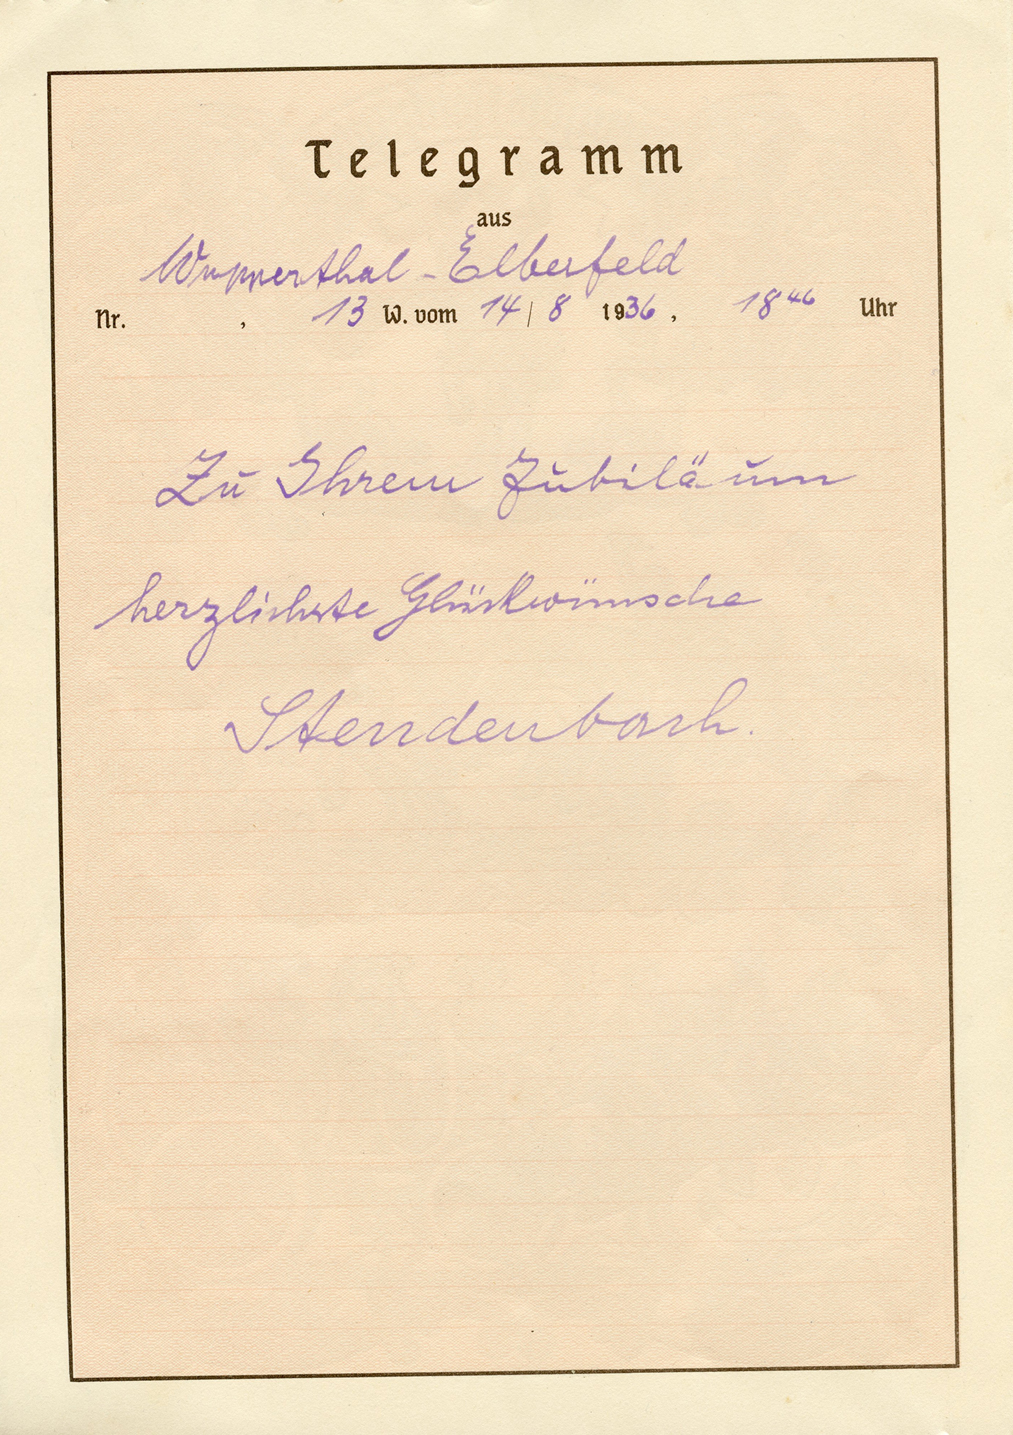 Telegramm
aus
Wupperthal-Elberfeld
Nr. , 13 W. vom 14/8 1936, 18⁴⁶ Uhr
Zu Ihrem Jubiläum
herzlichste Glückwünsche
Stendenbach.